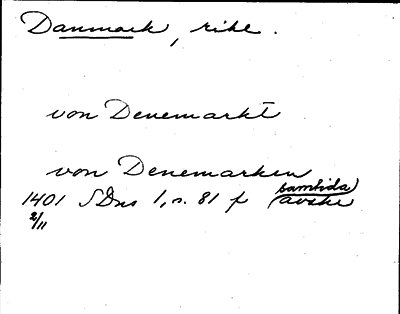 Danmark, rike.
von Denemarkt
von Denemarken
1401 SDns 1, s. 81 f (samtida avskr
2/11